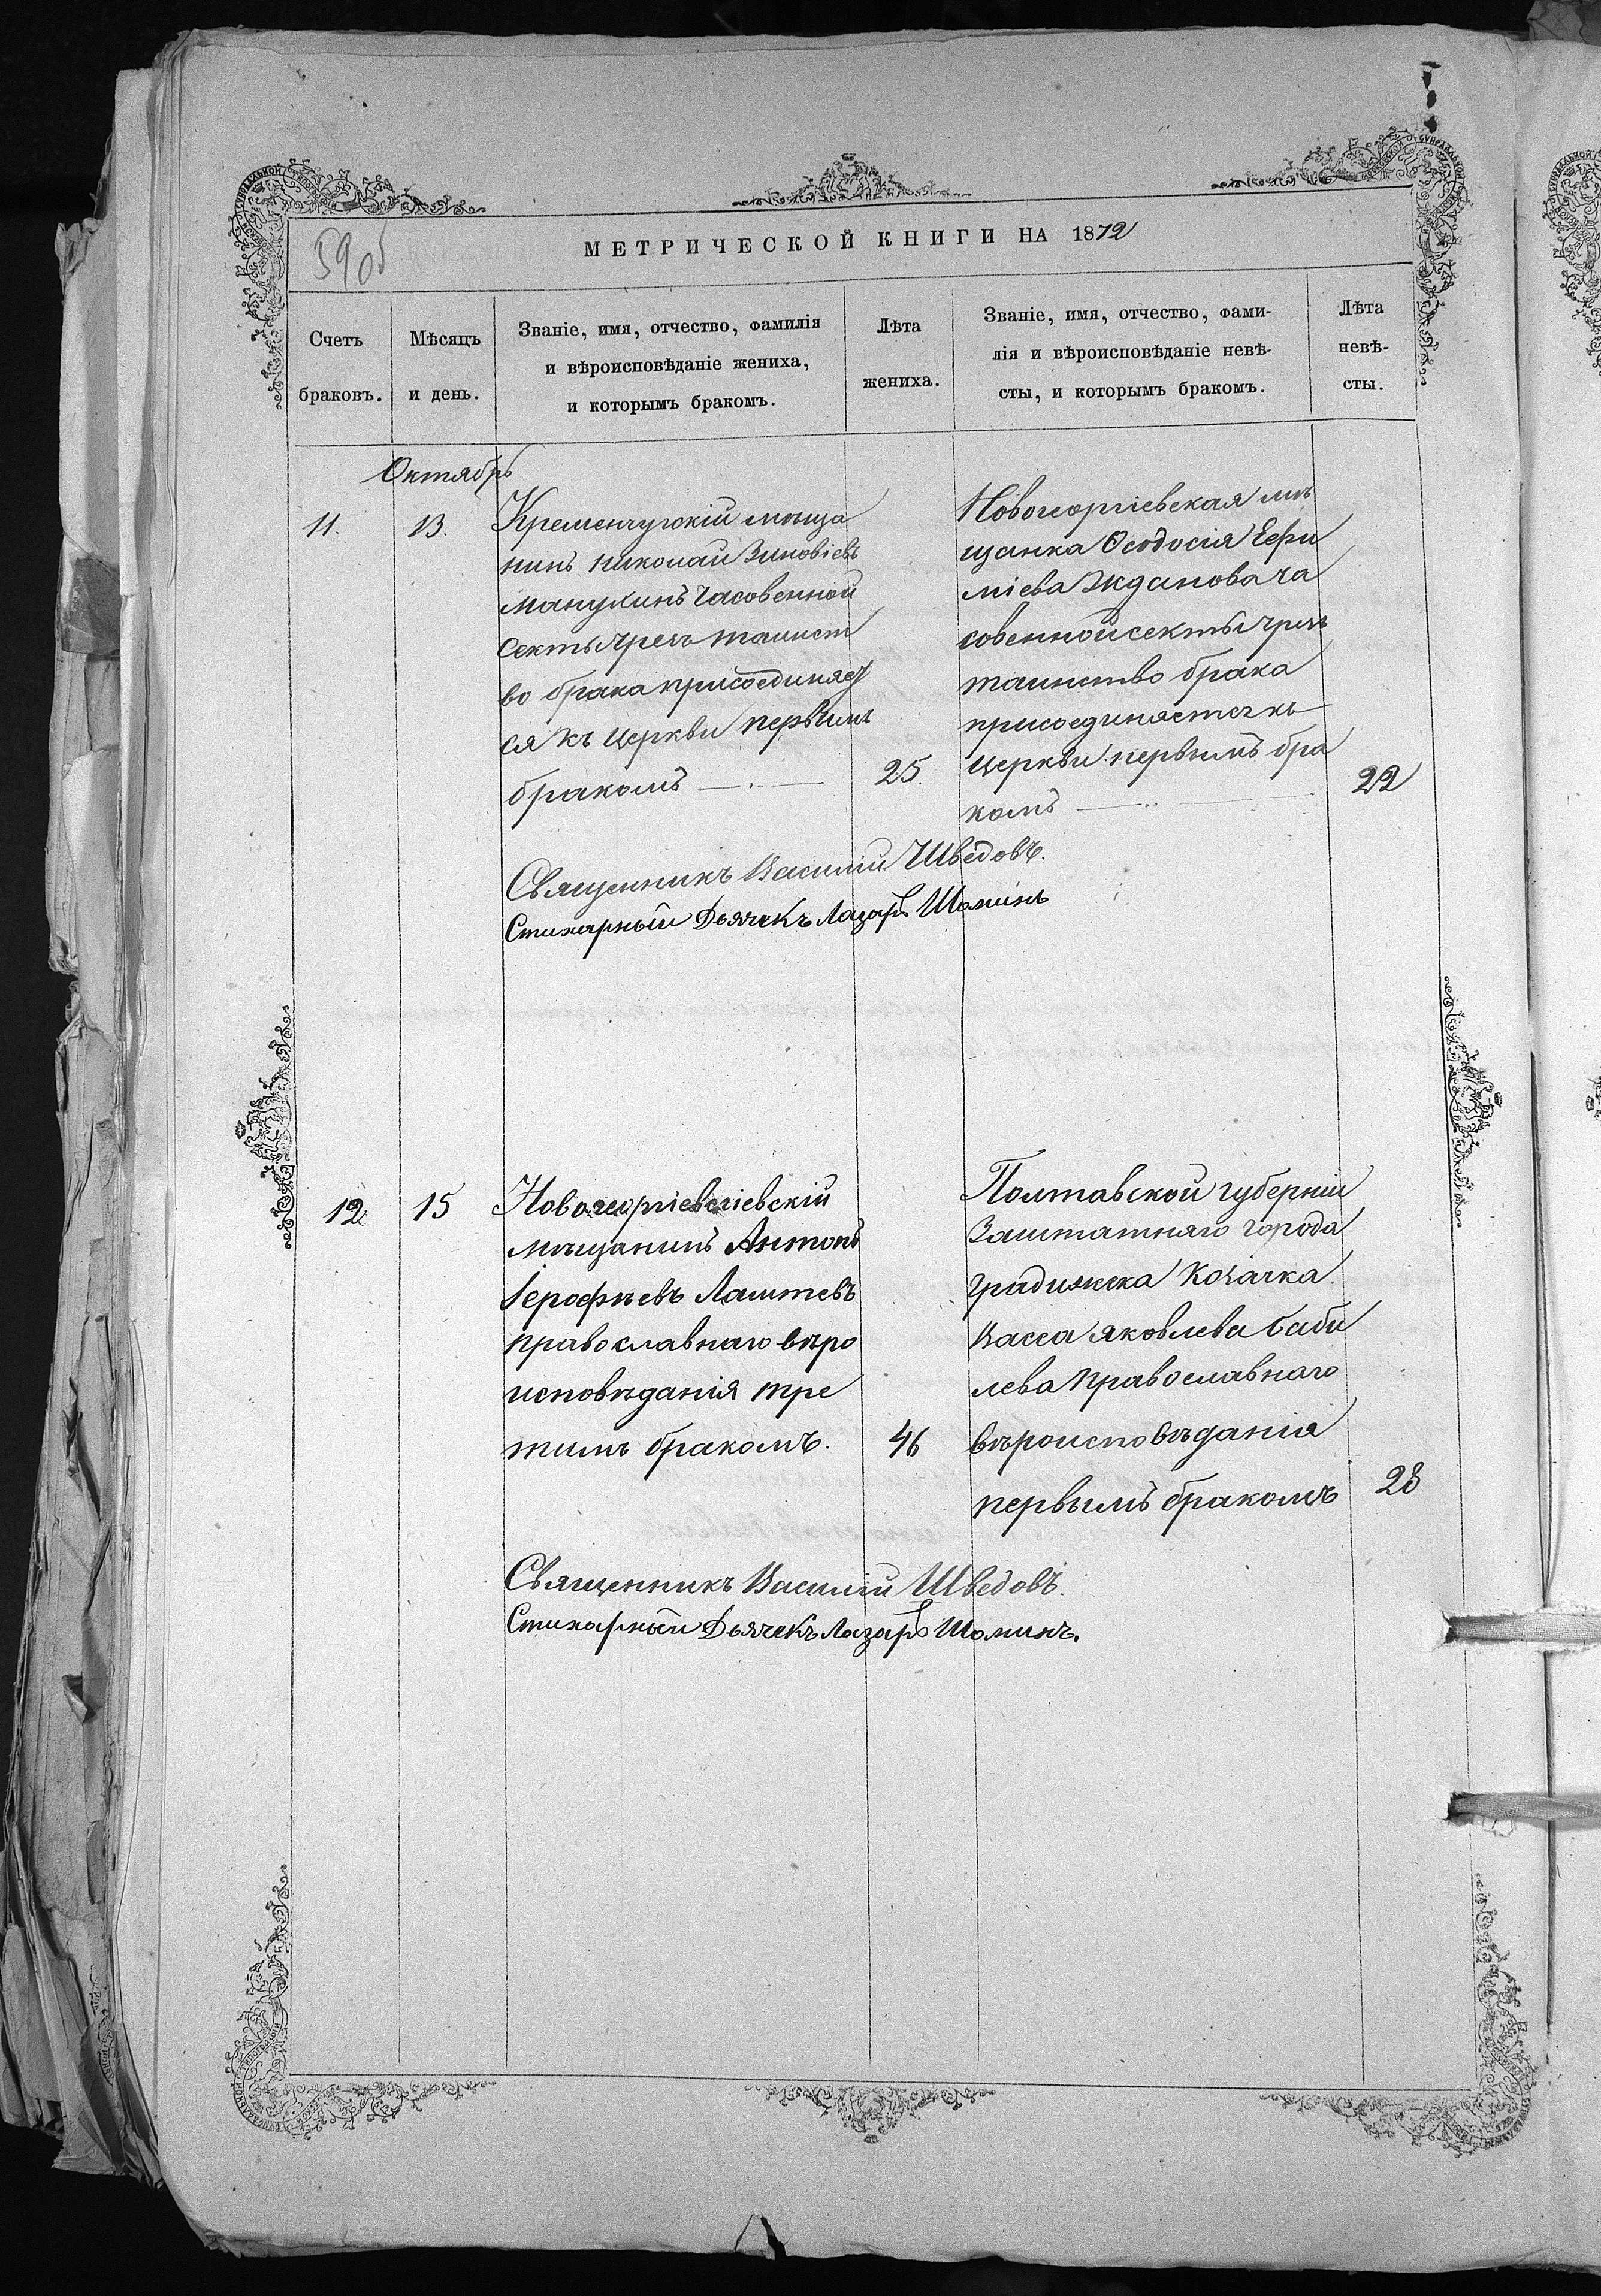 МЕТРИЧЕСКОЙ КНИГИ НА 1872
590б
Счетъ
браковъ.
Мѣсяцъ
и день.
Званіе, имя, отчество, фамилія
и вѣроисповѣданіе жениха,
и которымъ бракомъ.
Лѣта
жениха.
Званіе, имя, отчество, фами-
лія и вѣроисповѣданіе невѣ-
сты, и которымъ бракомъ.
Лѣта
невѣ-
сты.
Октябрь
11.
13.
Кременчугскій мѣща
нинъ Николай Зиновіевъ
Манухинъ Часовенной
Секты чрезъ таинст
во брака присоединяет
ся къ Церкви первымъ
бракомъ
25.
Новогеоргіевская мѣ
щанка Ѳеодосія Ефи
міева Жданова ча
совенной секты чрезъ
таинство брака
присоединяется къ
Церкви первымъ бра
комъ
22
Священникъ Василій Шведовъ.
Стихарный Дьячекъ Лазарь Шоминъ
12
15
Новогеоргіевсгіевскій
Мѣщанинъ Антонъ
Іерофѣевъ Лаштевъ
православнаго вѣро
исповѣданія тре
тимъ бракомъ.
46
Полтавской губерніи
Заштатнаго города
Градижска Козачка
Васса Яковлева Баби
лева Православнаго
вѣроисповѣданія
первымъ бракомъ
28
Священникъ Василій Шведовъ.
Стихарный Дьячекъ Лазарь Шоминъ.